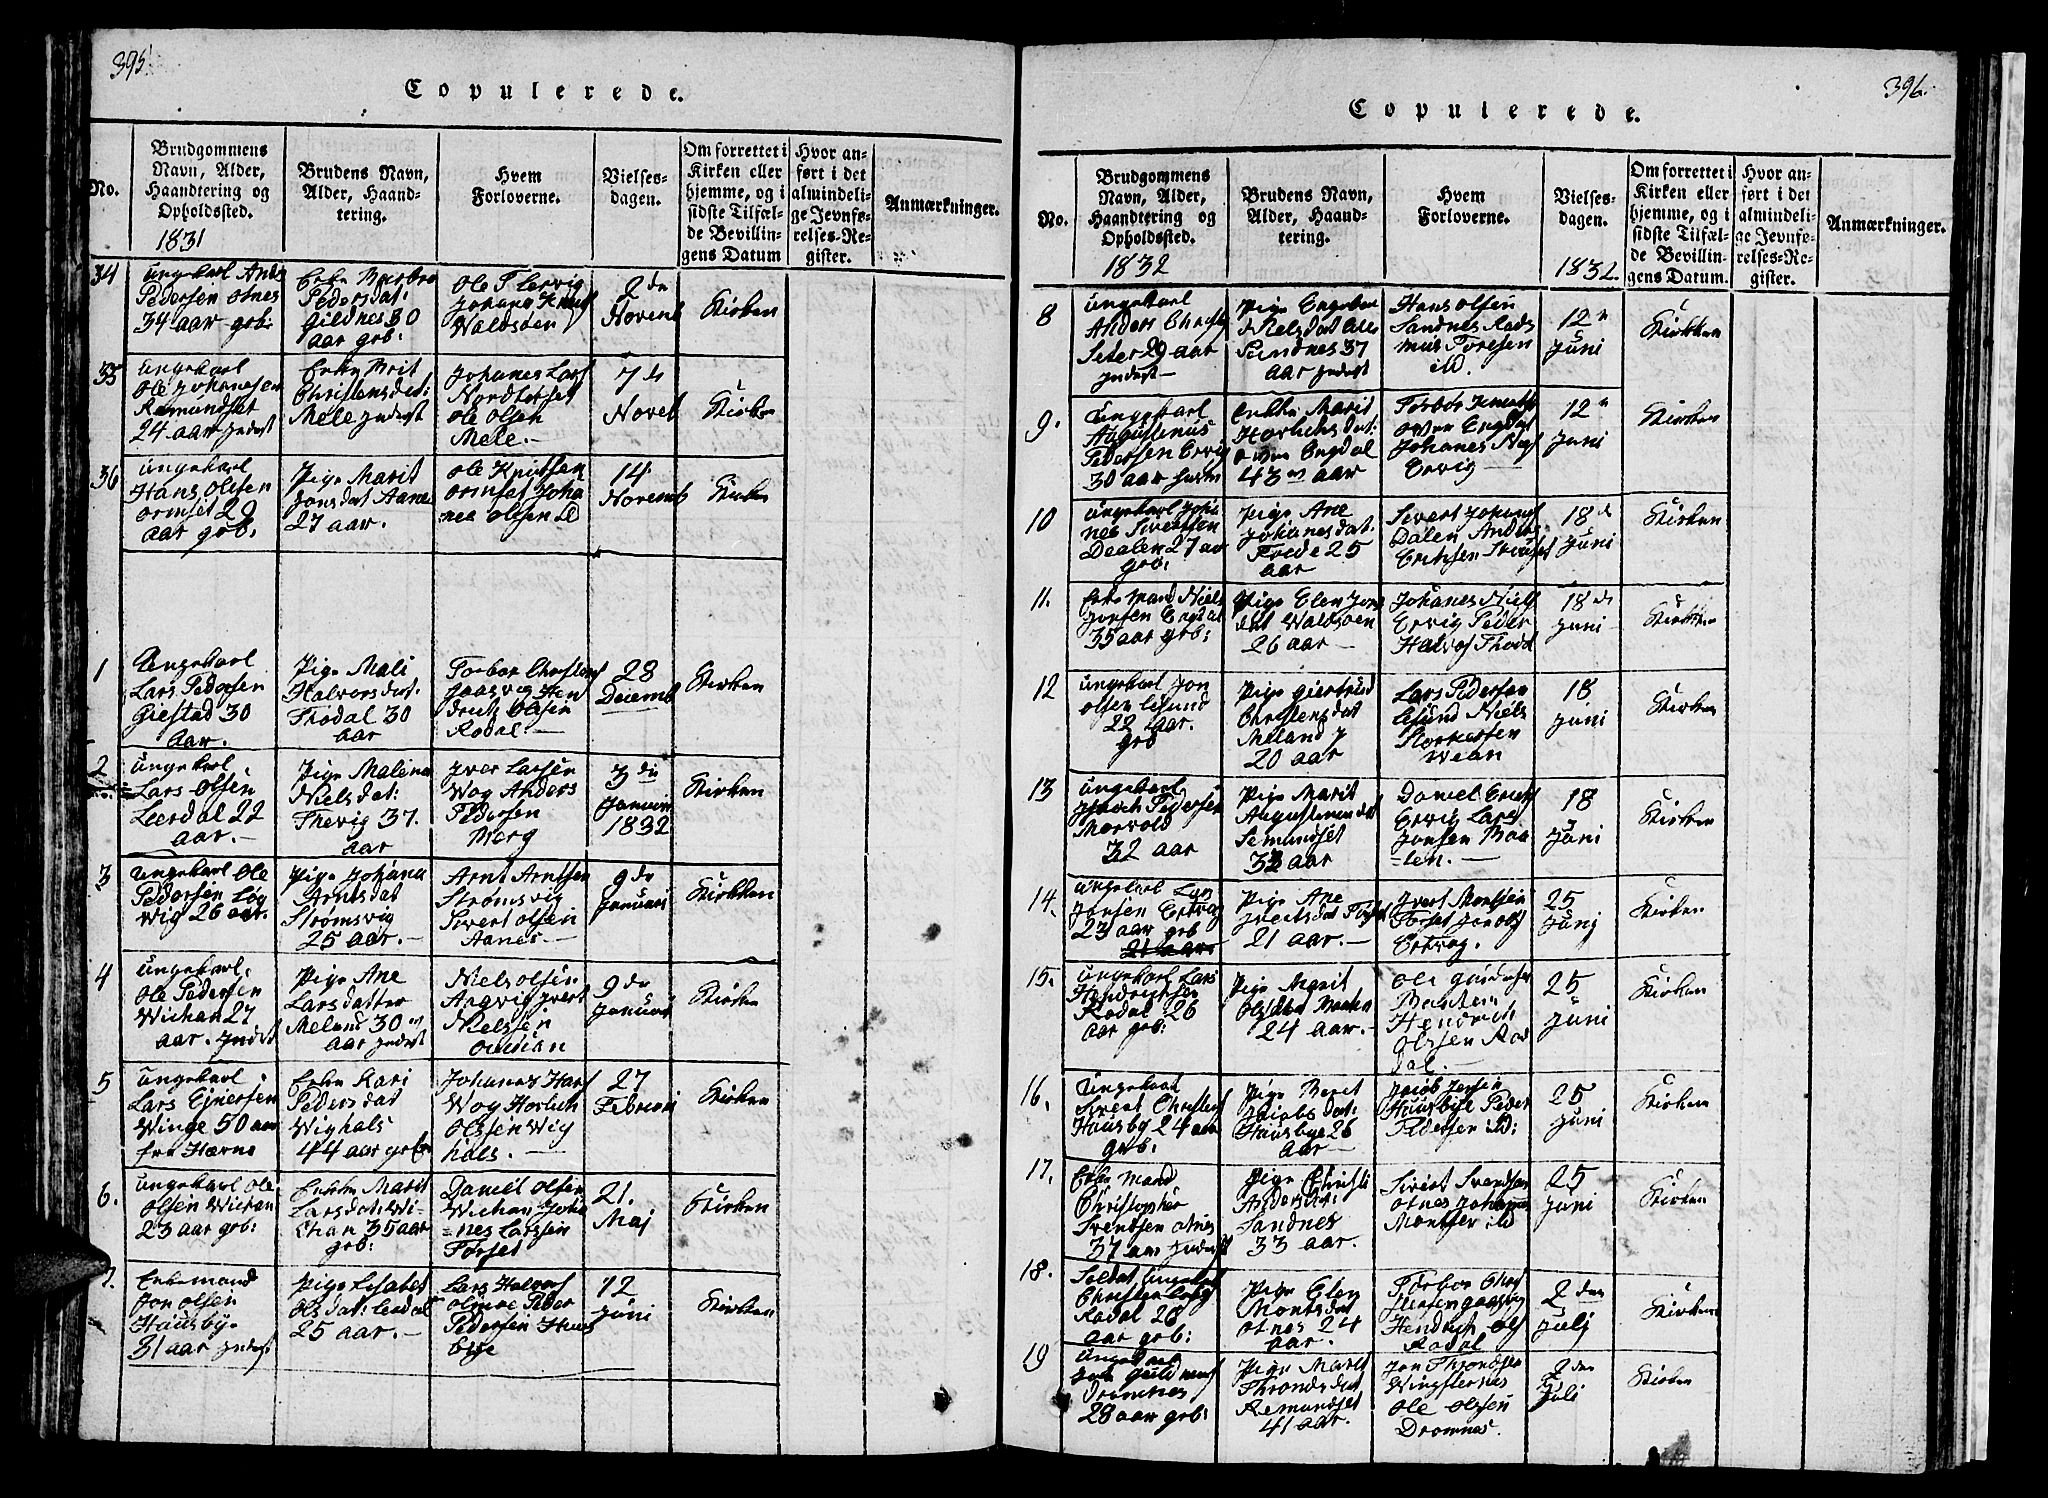 395.
Copulerede.
No.
Brudgommens Navn, Alder, Haandtering og Opholdssted.
1831
Brudens Navn, Alder, Haandtering.
Hvem Forloverne.
Vielsesdagen.
Om forrettet i Kirken eller hjemme, og i sidste Tilfælde Bevillingens Datum
Hvor anført i det almindelige Jevnførelses-Register.
Anmærkninger.
34
ungekarl
Pedersen otnes
34 aar grb:
Pedersdat:
Gildnes 30
aar grb:
Waldsøen
2 de
Novemb
Kirken
35
ungekarl
Ole Johannesen
Remundset
24 aar Inderst
Enke Brit
Christensdat:
Mele Inderst
Johanes Lars
Ole Olsen
Mele.
7 de
Novemb
36
ungekarl
Hans Olsen
ormset 29
aar grb.
Pige Marit
Jonsdat Aane
27 aar.
Ole Knudsen
ormset Joha
nes Olsen ld
14
Novemb
Kirken
1
Ungekarl
Lars Pedersen
Giestad 30
Aar.
Pige Mali
Halvorsdat.
Frodal 30
aar
Hen
drich Olsen
Rodal.
28
Decemb
Kirken
2
ungekarl
Lars Olsen
Leerdal 22
aar.
Pige Malena
Nielsdat:
37.
aar
Iver Larsen
Wog Anders
Pedersen
Berg
3 die
Januar
1832
Kirken
3
Ungekarl Ole
Pedersen Løg
wig 26 aar.
Pige Johana
Arntsdat
Strømsvig
25 aar.
Arnt Arntsen
Strømsvig
Sivert Olsen
Aanes.
9 de
Januari
Kirken
4
ungekarl
Ole Pedersen
Wichan 27
aar. Inderst
Pige Ane
Larsdatter
Meland 30
aar Inderst
Niels Olsen
Ivert
Nielsen
9 de
Januari
Kirken
5
ungekarl
Lars Ejnersen
Winge 50 aar
fra Hævne
Enke Kari
Pedersdat
Wighals
44 aar grb
Johanes Hans
Wog Horlich
Olssen Wig
hals.
27
Februari
Kirken
6.
ungekarl Ole
Olsen Wichan
23 aar grb:
Enke Marit
Larsdat: Wi-
chan 35 aar
grb:
Daniel Olsen
Wichan Joha
nes Larssen
Forset
21.
Maj
Kirken
7.
Enkemand
Jon Olsen
Hausby.
31 aar Inderst
Pige Lisabet
Olsdat: Lerdal
25 aar.
Lars Halvors
Peder
Pedersen Haus
bye
12
Juni
Kirken
396.
Copulerede.
No.
Brudgommens Navn, Alder, Haandtering og Opholdssted.
1832
Brudens Navn, Alder, Haandtering.
Hvem Forloverne.
Vielsesdagen.
1832.
Om forrettet i Kirken eller hjemme, og i sidste Tilfælde Bevillingens Datum.
Hvor anført i det almindelige Jevnførelses-Register.
Anmærkninger.
8
ungekarl
Anders Christ
Seter 29 aar
Inderst
Nielsdat
Sandnes 37
aar Inderst
Hans Olsen
Sandnes Ras
mus Toresen
ild
12
Juni
Kirken
9.
Ungekarl
Augustinus
Pedersen Ervig
30 aar
Enke Marit
Horlichsdat:
Engdal
43 aar
Engdal
Johanes
Ervig
12
Juni
Kirken
10
ungekarl Joha
nes Sivertsen
Dealen 27 aar
grb:
Pige Ane
Johanesdat.
Frede 25
aar
Sivert Johans
Dalen Anders
Erichsen
18 de
Juni
Kirken
11.
Enkemand Niels
Jonsen Engdal
35 aar grb:
Pige Elen Jons
dat Waldsøen
26 aar
Johanes Niels
Ervig Peder
18 de
Juni
Kirken
12
ungekarl Jon
Olsen
22 aar.
grb
Pige Giertrud
Christensdat
Meland
20 aar
Lars Pedersen
Niels
18
Juni
Kirken
13
ungekarl
Pedersen
Morvold
32 aar
Pige Marit
Semundset
aar
Daniel Erichs
Ervig Lars
Jonsen Baa
len.
18
Juni
Kirken
14.
ungekarl Lars
Jonsen Ertvog
23 aar grb
Pige Ane
Ivertsdat
21 aar.
Ivert
Forset
Ertvog.
25
Juni
Kirken
15.
ungekarl Lars
Hendrichsen
Rodal 26
aar grb:
Pige Marit
Olsdat
24 aar.
Ole
Hendrich
Olssen Rod
dal.
25
Juni
Kirken
16.
Ungekarl
Sivert Christens
Hausby 24 aar
grb:
Pige Beret
Jacobsdat:
Hausbye 26
aar
Jacob Jensen
Hausbye Peder
Pedersen ild:
25
Juni
Kirken
17.
Enkemand
Christopher
Svendsen otnes
37 aar Inderst
Pige Christi
Andersdat:
Sandnes
33 aar.
Sivert Svendsen
otnes Johannes
ild
25
Juni
Kirken
18.
Soldat Ungekarl
Rodal 28
aar grb:
Pige Elen
Montsdat
otnes 24
aar.
Hendrich Ols
Rodal
2 den
Juli
Kirken
19
Dromnes
28 aar grb:
Pige Marit
Throndsdat
Remundset
41 aar.
Jon Throndsen
Ole Olssen
Dromnes.
2 den
Juli
Kirken